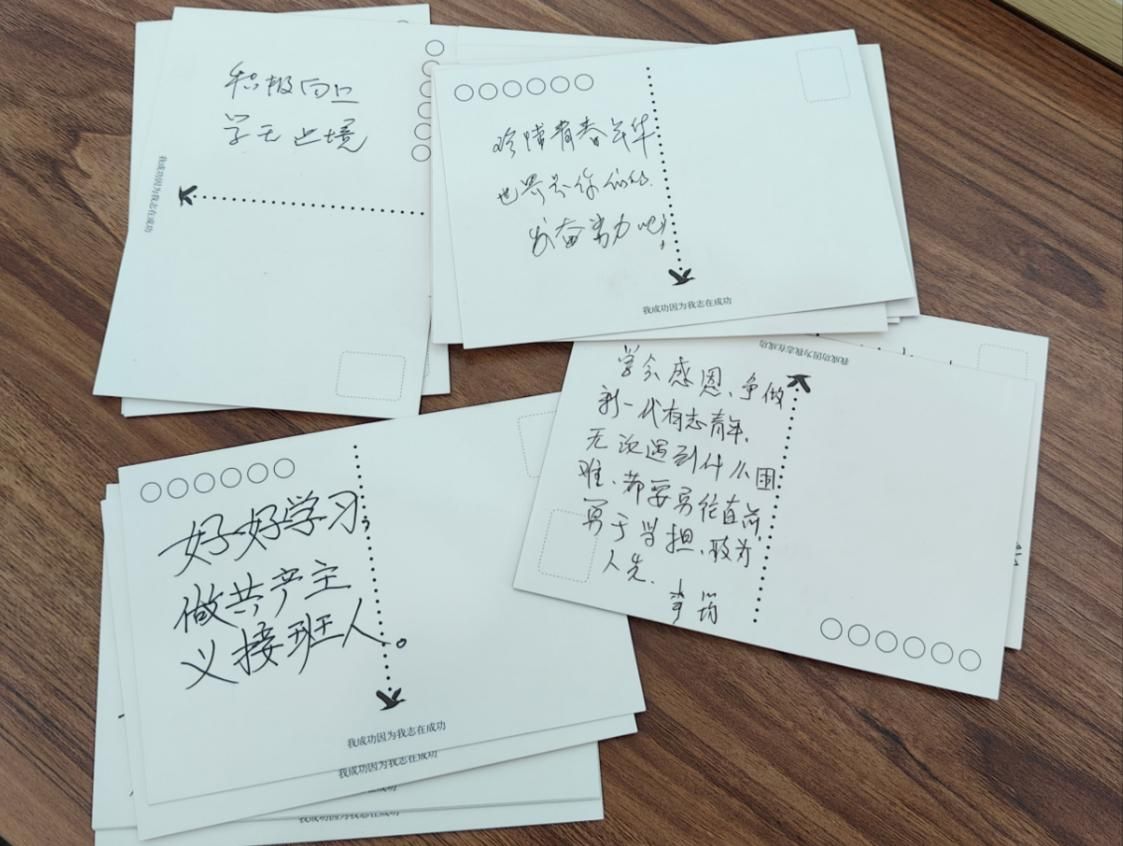 积极向上
学无止境
我成功因为我志在成功
珍惜青春年华
世界是你们的.
发奋努力吧!
我成功因为我志在成功
学会感恩、争做
新一代有志青年,
无论遇到什么困
难、都要勇往直前,
勇于当担、敢为
人先.
我成功因为我志在成功
好好学习,
做共产主
义接班人。
我成功因为我志在成功
我成功因为我志在成功
我成功因为我志在成功